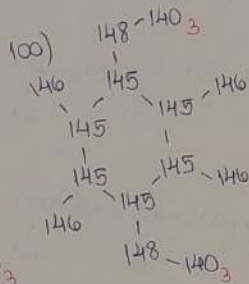 100) 148-140₃
146 145 146
145 145
145 145 146
146 145
148-140₃
3